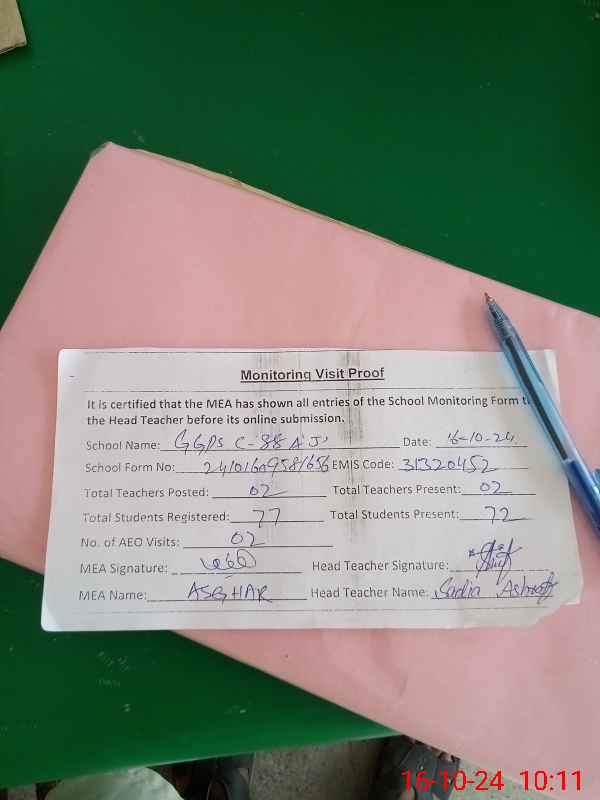 Monitoring Visit Proof
It is certified that the MEA has shown all entries of the School Monitoring Form to
the Head Teacher before its online submission.
School Name: GGPS C-88 A J' Date: 16-10-24
School Form No: EMIS Code: 31320452
Total Teachers Posted: 02 Total Teachers Present: 02
Total Students Registered: 77 Total Students Present: 72
No. of AEO Visits: 02
MEA Signature: Head Teacher Signature:
MEA Name: ASGHAR Head Teacher Name: Sadia Ashraf
16-10-24 10:11